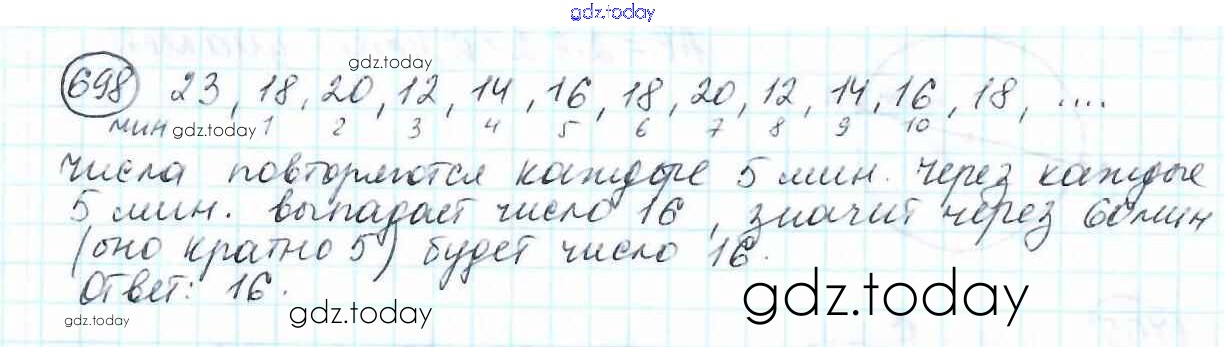 gdz.today
gdz.today
698 23, 18, 20, 12, 14, 16, 18, 20, 12, 14, 16, 18, ....
мин gdz.today 1 2 3 4 5 6 7 8 9 10
числа повторяются каждые 5 мин. Через каждые
5 мин. выпадает число 16, значит через 60 мин
(оно кратно 5) будет число 16.
Ответ: 16.
gdz.today
gdz.today
gdz.today